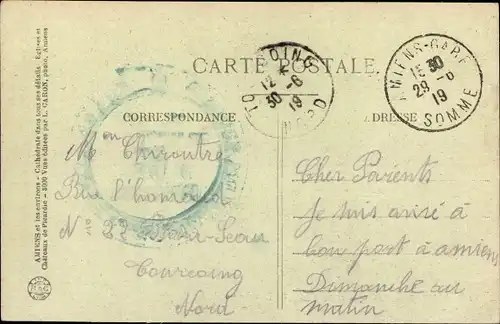 AMIENS et les environs - Cathédrale dans tous ses détails Eglises et
Châteaux de Picardie - 4000 Vues éditées par L. CARON, photo, Amiens
CARTE POSTALE
CORRESPONDANCE
DRESSE
TO OING
12
30-6
19
NORD
AMIENS-GARE
15 30
29-6
19
SOMME
Mon
Rue
N 22
Tourcoing
Nord
Cher Parents
Je suis arivé à
bon port à amiens
Dimanche au
matin